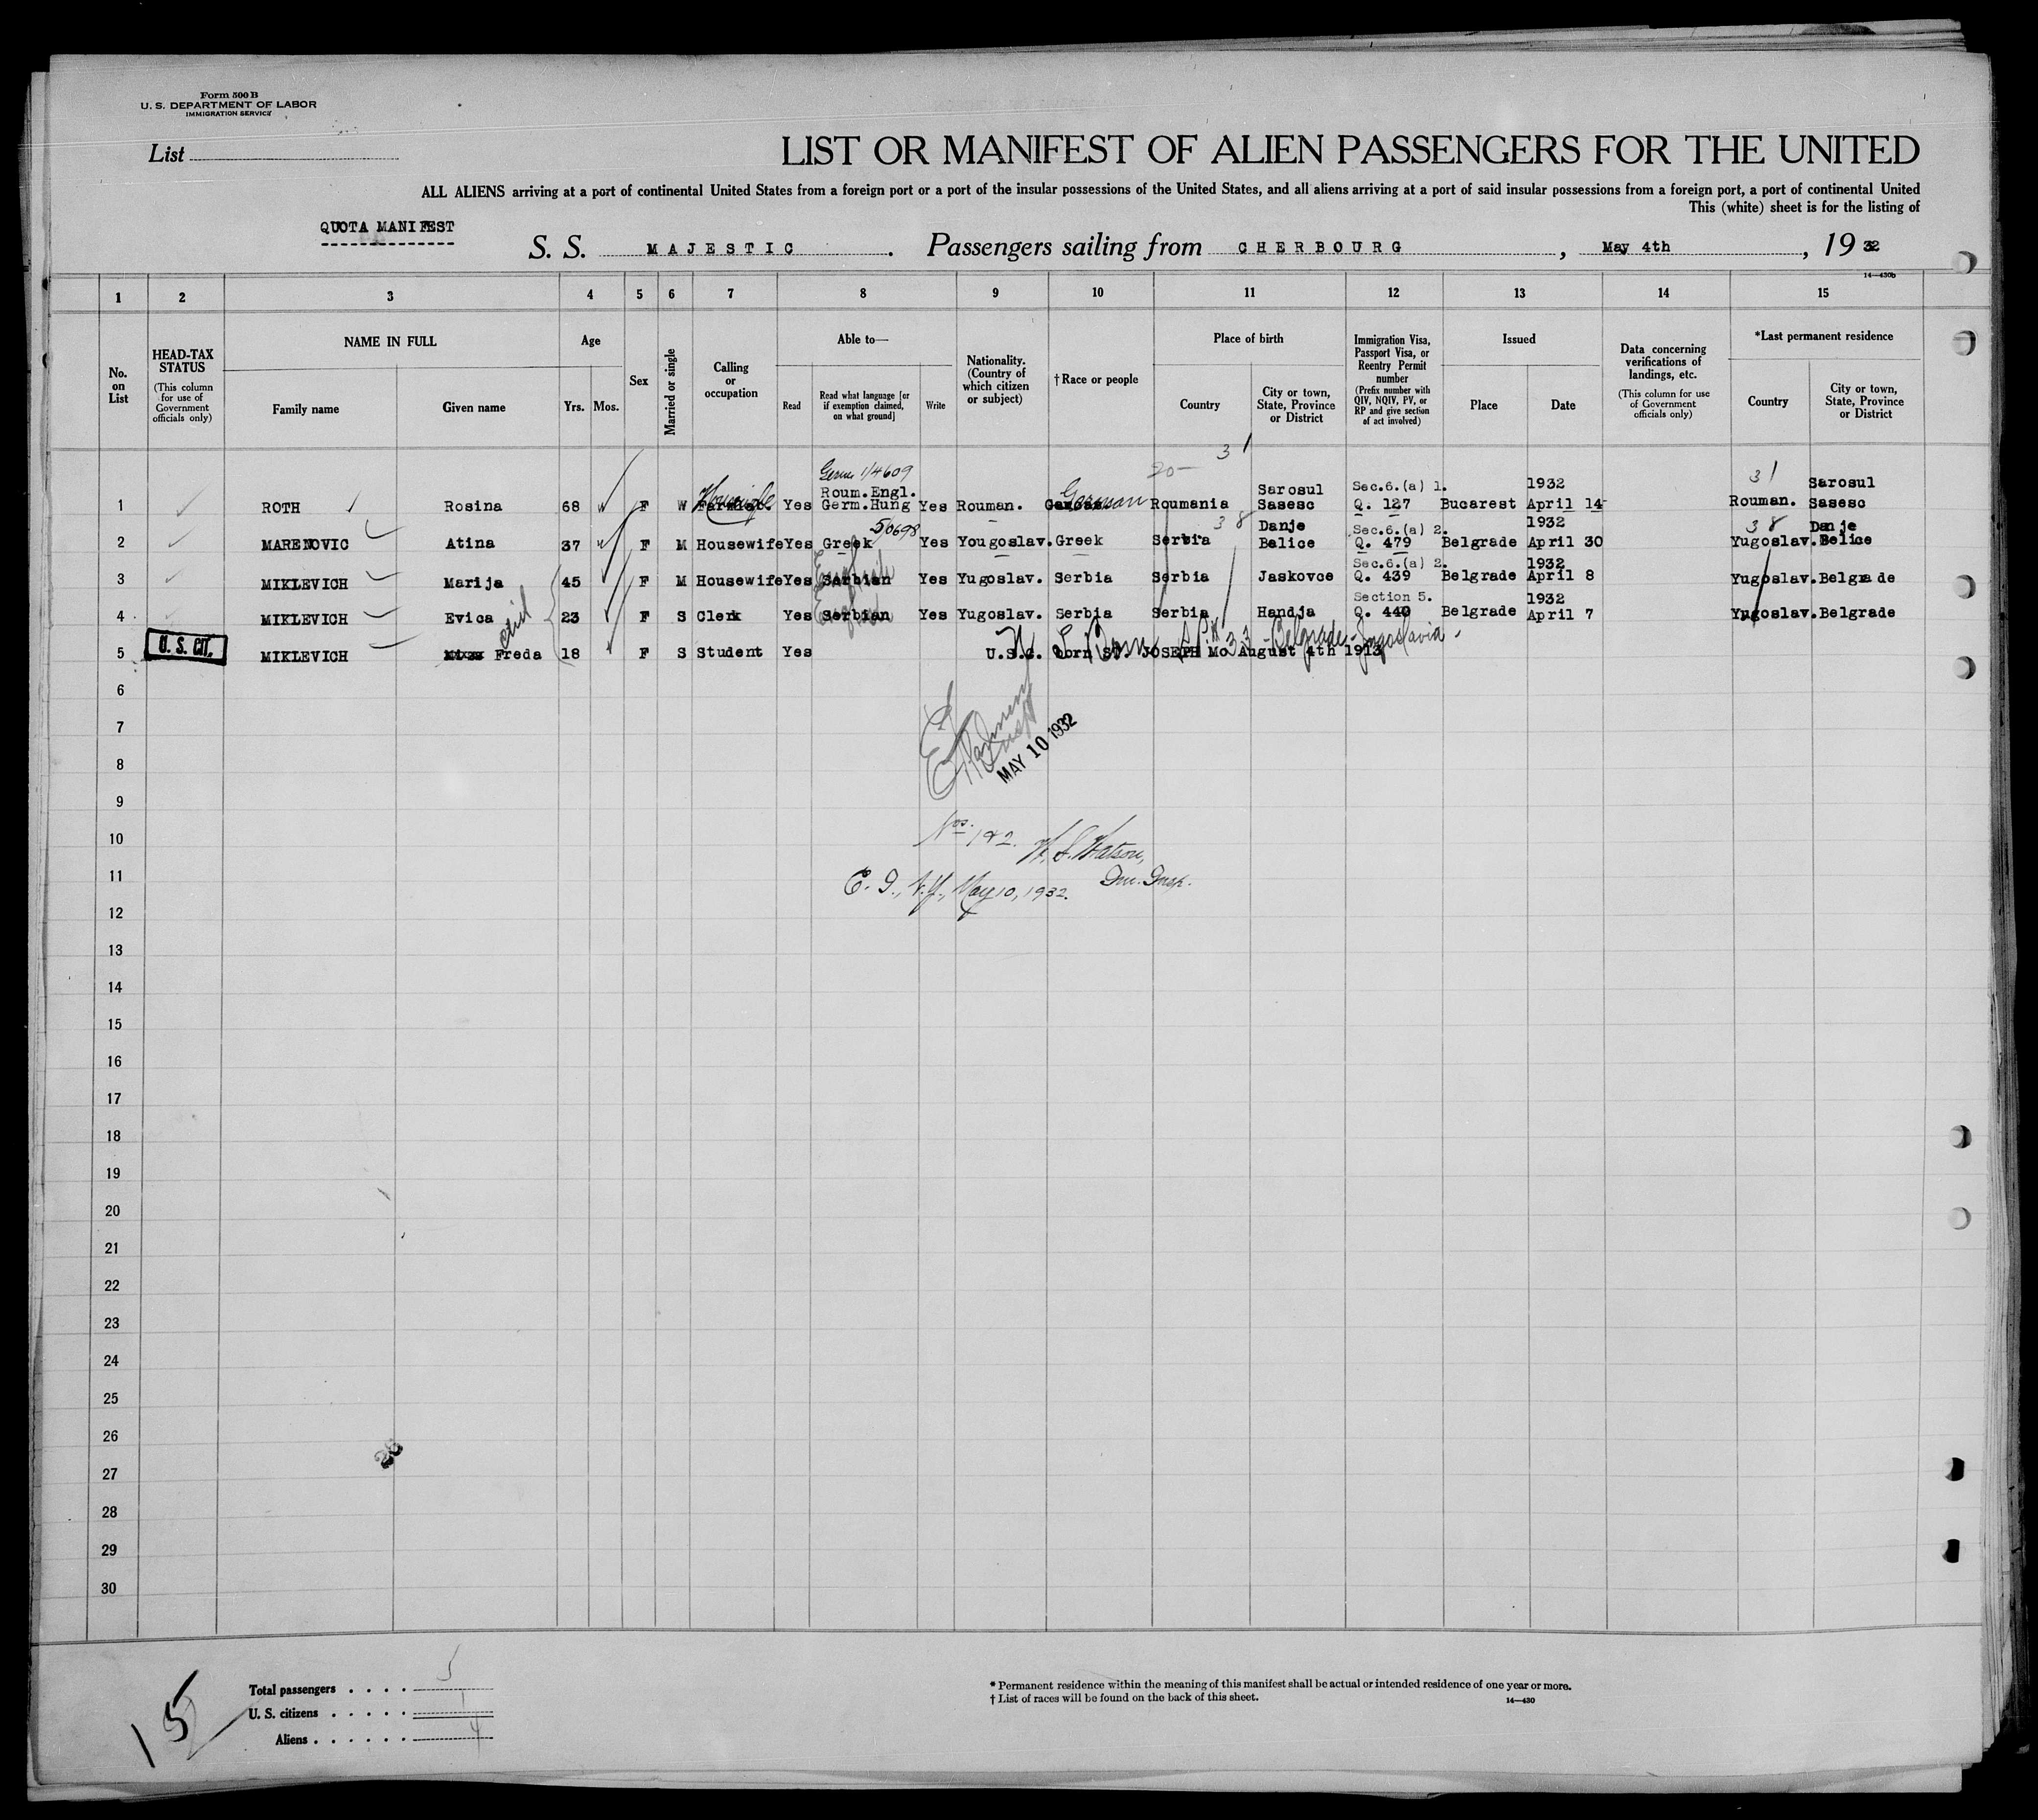 Form 500 B
U. S. DEPARTMENT OF LABOR
IMMIGRATION SERVICE
List
LIST OR MANIFEST OF ALIEN PASSENGERS FOR THE UNITED
ALL ALIENS arriving at a port of continental United States from a foreign port or a port of the insular possessions of the United States, and all aliens arriving at a port of said insular possessions from a foreign port, a port of continental United
This (white) sheet is for the listing of
QUOTA MANIFEST
S. S. MAJESTIC. Passengers sailing from CHERBOURG, May 4th, 1932
14—430b
1 2 3 4 5 6 7 8 9 10 11 12 13 14 15
No. on List
HEAD-TAX STATUS (This column for use of Government officials only)
NAME IN FULL Family name Given name
Age Yrs. Mos.
Sex
Married or single
Calling or occupation
Able to— Read Read what language [or if exemption claimed, on what ground] Write
Nationality. (Country of which citizen or subject)
†Race or people
Place of birth Country City or town, State, Province or District
Immigration Visa, Passport Visa, or Reentry Permit number (Prefix number with QIV, NQIV, PV, or RP and give section of act involved)
Issued Place Date
Data concerning verifications of landings, etc. (This column for use of Government officials only)
*Last permanent residence Country City or town, State, Province or District
31
20- 31
Germ 1/4609 Sarosul Sec.6.(a) 1. 1932 Sarosul
1 ROTH Rosina 68 F W Housewife Yes Roum.Engl. Germ.Hung Yes Rouman. German Roumania Sasesc Q. 127 Bucarest April 14 Rouman. Sasesc
5/0698 38 Danje Sec.6.(a) 2. 1932 38 Danje
2 MARENOVIC Atina 37 F M Housewife Yes Greek Yes Yougoslav. Greek Serbia Belice Q. 479 Belgrade April 30 Yugoslav. Belice
English Sec.6.(a) 2. 1932
3 MIKLEVICH Marija 45 F M Housewife Yes Serbian Yes Yugoslav. Serbia Serbia Jaskovce Q. 439 Belgrade April 8 Yugoslav. Belgrade
English Section 5. 1932
4 MIKLEVICH Evica 23 F S Clerk Yes Serbian Yes Yugoslav. Serbia Serbia Handja Q. 440 Belgrade April 7 Yugoslav. Belgrade
U. S. CIT.
33 - Belgrade - Jugoslavia -
5 MIKLEVICH Freda 18 F S Student Yes U.S.C. born St. JOSEPH Mo August 4th 1913
6
7
MAY 10 1932
8
9
10
Nos. 1&2. W. S. Watson,
11
Im. Insp.
E. I., N.Y., May 10, 1932.
12
13
14
15
16
17
18
19
20
21
22
23
24
25
26
27
28
29
30
Total passengers 5
U. S. citizens 1
Aliens 4
15
* Permanent residence within the meaning of this manifest shall be actual or intended residence of one year or more.
† List of races will be found on the back of this sheet.
14—430